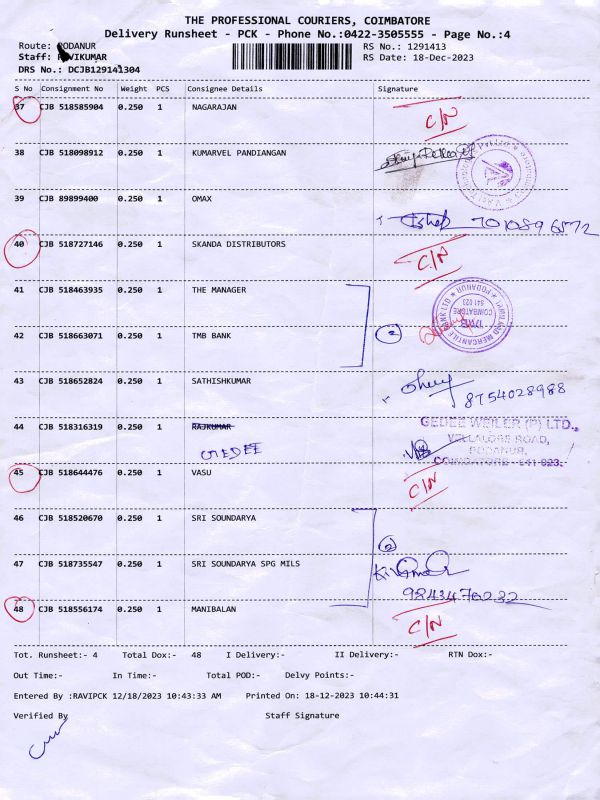 THE PROFESSIONAL COURIERS, COIMBATORE
Delivery Runsheet - PCK - Phone No.:0422-3505555 - Page No.:4
Route: PODANUR RS No.: 1291413
Staff: RAVIKUMAR RS Date: 18-Dec-2023
DRS No.: DCJB1291413304
S No Consignment No Weight PCS Consignee Details Signature
37 CJB 518585904 0.250 1 NAGARAJAN C/N
38 CJB 518098912 0.250 1 KUMARVEL PANDIANGAN
39 CJB 89899400 0.250 1 OMAX
7010896572
40 CJB 518727146 0.250 1 SKANDA DISTRIBUTORS C/N
41 CJB 518463935 0.250 1 THE MANAGER
TAMILNAD MERCANTILE BANK LTD. PODANUR COIMBATORE 641 023
42 CJB 518663071 0.250 1 TMB BANK 2
43 CJB 518652824 0.250 1 SATHISHKUMAR
8754028988
44 CJB 518316319 0.250 1 RAJKUMAR
GEDEE
GEDEE WEILER (P) LTD.,
VELLALORE ROAD,
PODANUR,
COIMBATORE - 641 023.
45 CJB 518644476 0.250 1 VASU C/N
46 CJB 518520670 0.250 1 SRI SOUNDARYA
2
47 CJB 518735547 0.250 1 SRI SOUNDARYA SPG MILS
9243476232
48 CJB 518556174 0.250 1 MANIBALAN C/N
Tot. Runsheet:- 4 Total Dox:- 48 I Delivery:- II Delivery:- RTN Dox:-
Out Time:- In Time:- Total POD:- Delvy Points:-
Entered By :RAVIPCK 12/18/2023 10:43:33 AM Printed On: 18-12-2023 10:44:31
Verified By Staff Signature